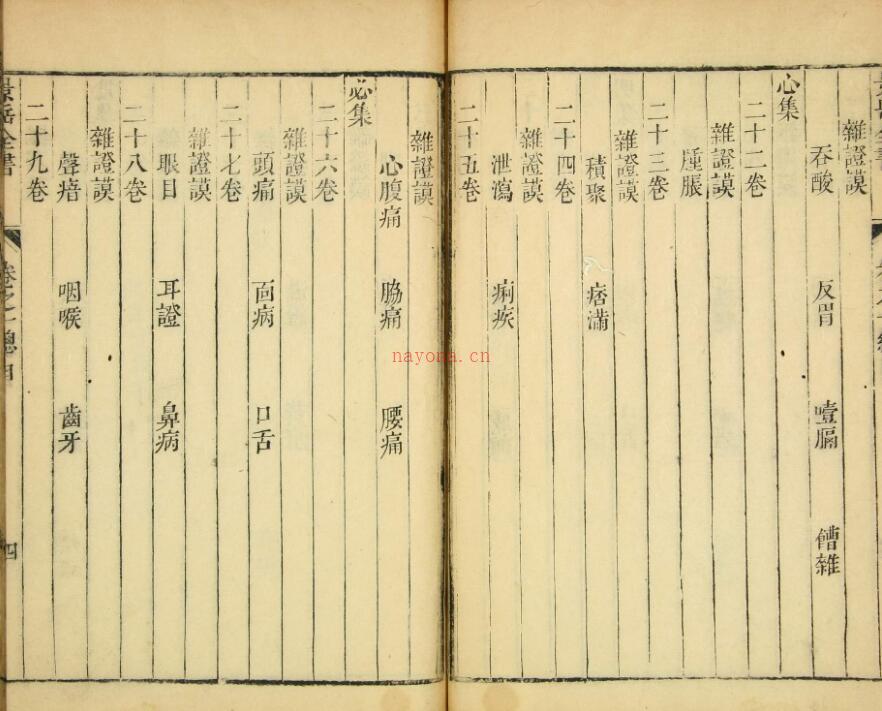 雜證謨
吞酸 反胃 噎膈 嘈雜
心集
二十二卷
雜證謨
腫脹
二十三卷
雜證謨
積聚 痞滿
二十四卷
雜證謨
泄瀉 痢疾
二十五卷
雜證謨
心腹痛 脇痛 腰痛
必集
二十六卷
雜證謨
頭痛 面病 口舌
二十七卷
雜證謨
眼目 耳證 鼻病
二十八卷
雜證謨
聲瘖 咽喉 齒牙
二十九卷
景岳全書 卷之一總目 四
nayona.cn